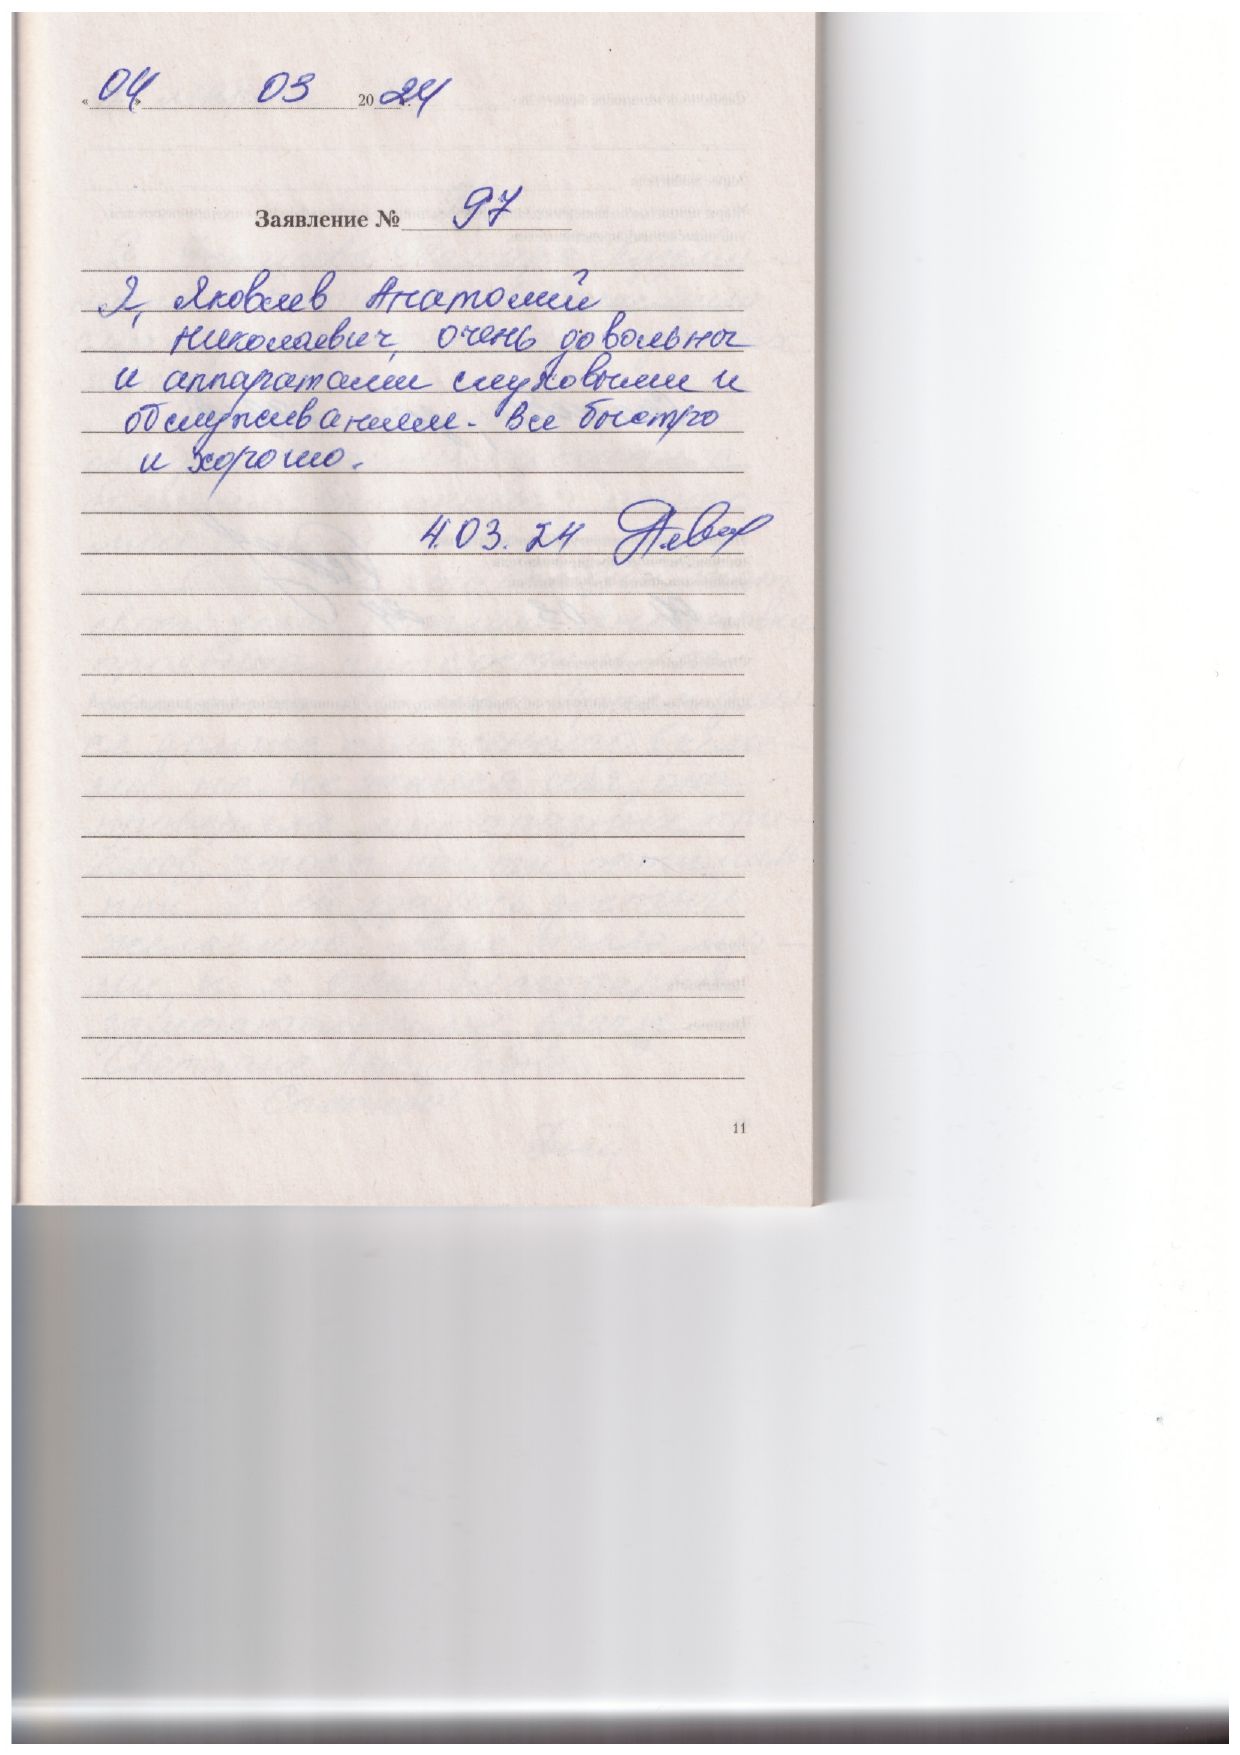 «04» 03 2024 г.
Заявление № 97
Я, Яковлев Анатолий
Николаевич, очень довольны
и аппаратами слуховыми и
обслуживанием. Все быстро
и хорошо.
4.03.24
11